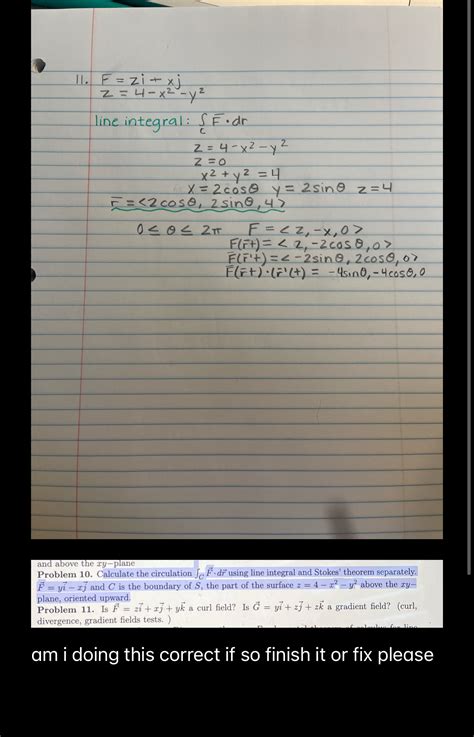 11. F = zi + xj
z = 4 - x² - y²
line integral: ∫c F̄ • dr
z = 4 - x² - y²
z = 0
x² + y² = 4
x = 2cosθ y = 2sinθ z = 4
r̄ = <2cosθ, 2sinθ, 4>
0 ≤ θ ≤ 2π F = < z, -x, 0>
F(r̄t) = < 2, -2cosθ, 0>
F(r̄'t) = < -2sinθ, 2cosθ, 0>
F̄(r̄t) · (r̄'(t) = -4sinθ, -4cosθ, 0
and above the xy-plane
Problem 10. Calculate the circulation ∫C F⃗ · dr⃗ using line integral and Stokes' theorem separately.
F⃗ = yi⃗ − xj⃗ and C is the boundary of S, the part of the surface z = 4 − x² − y² above the xy−
plane, oriented upward.
Problem 11. Is F⃗ = zi⃗ + xj⃗ + yk⃗ a curl field? Is G⃗ = yi⃗ + zj⃗ + zk⃗ a gradient field? (curl,
divergence, gradient fields tests. )
am i doing this correct if so finish it or fix please